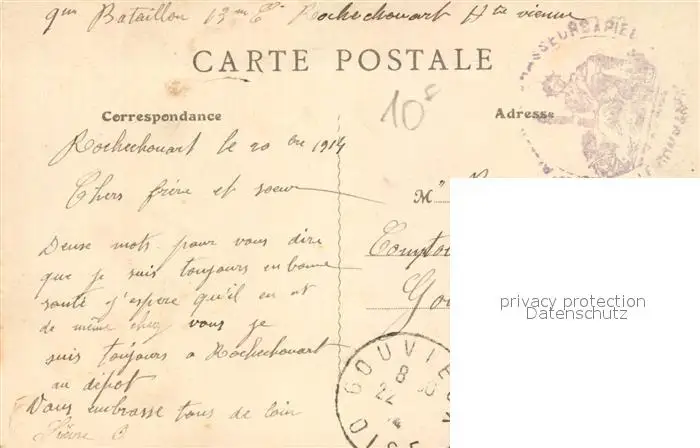 9me Bataillon 13me Cie Rochechouart Hte vienne
CARTE POSTALE
Correspondance
Adresse
10c
CHASSEURS A PIED
Rochechouart le 20 bre 1914
Chers frère et soeur
M
Deuse mots pour vous dire
que je suis toujours en bonne
santé j'espere qu'il en est
de même chez vous je
suis toujours a Rochechouart
au dépot
Vous embrasse tous de loin
Compto
Gou
privacy protection
Datenschutz
GOUVIEUX
8
22
OISE